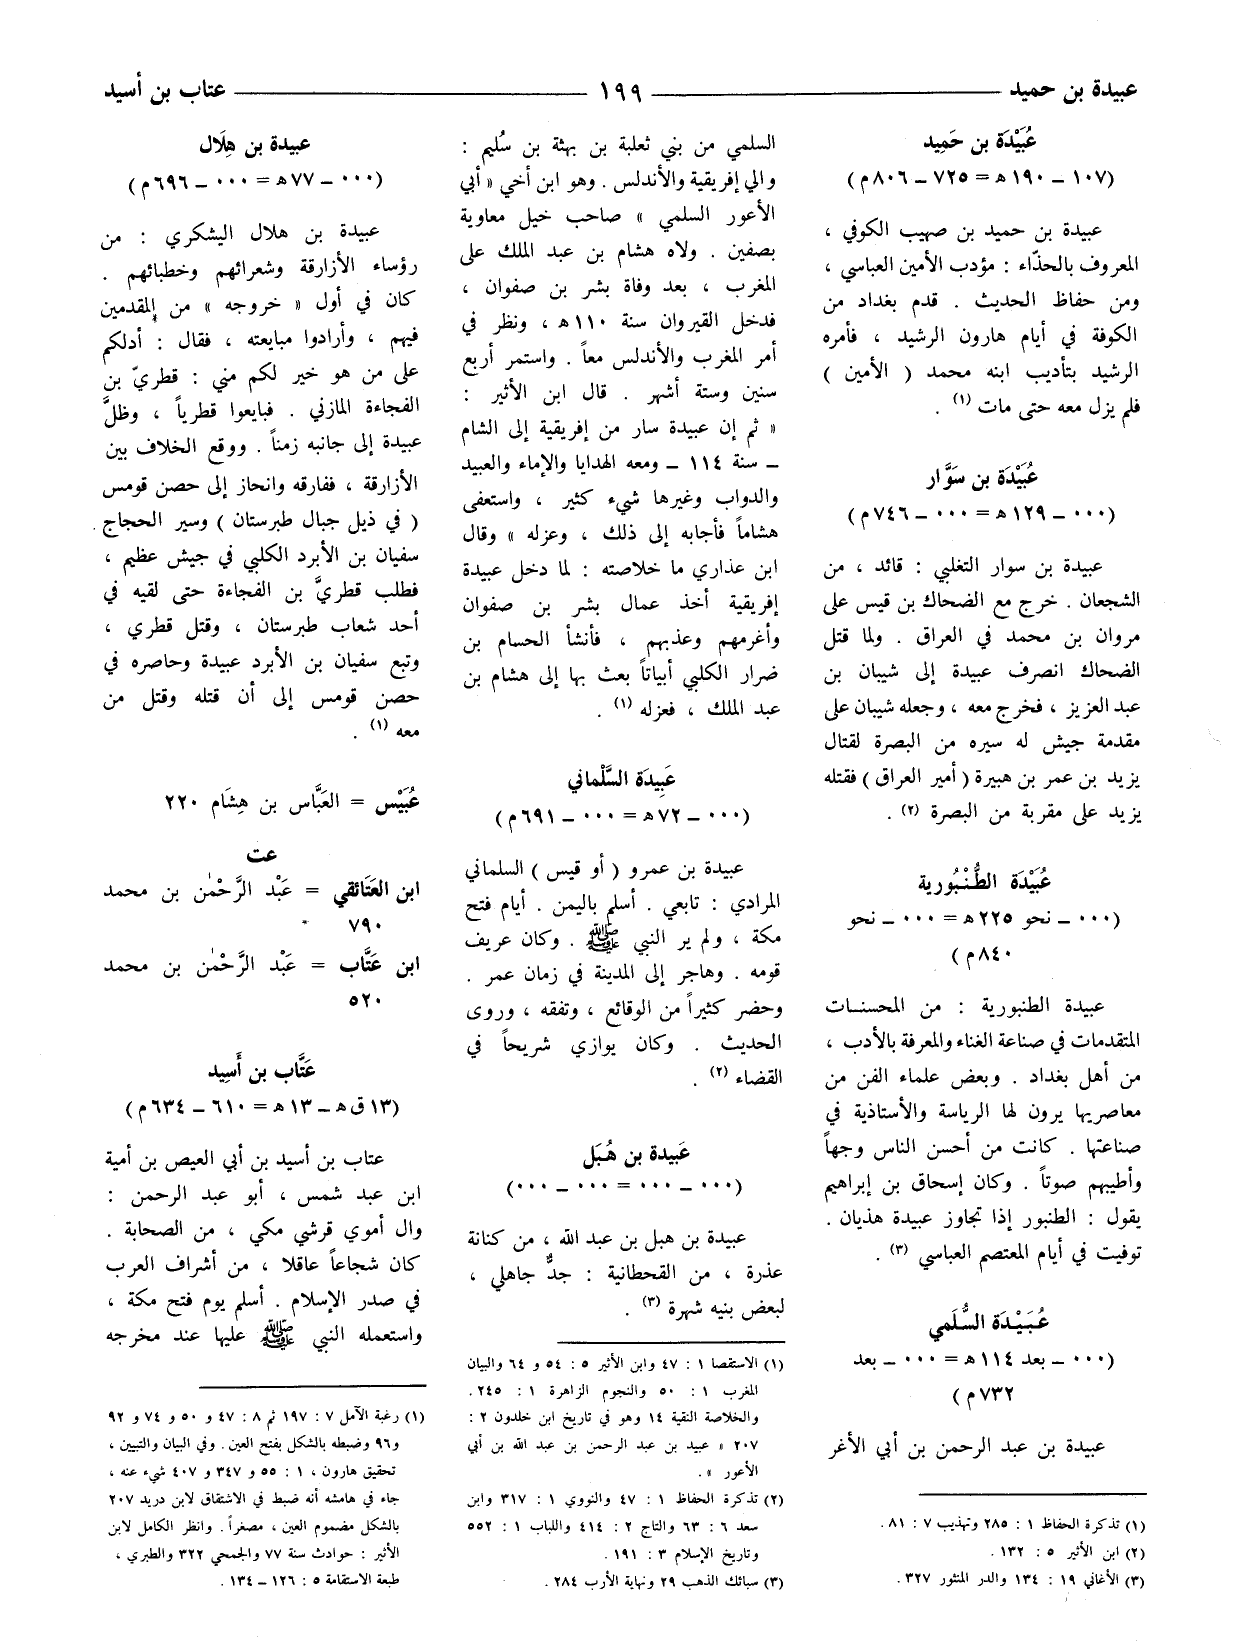 عبيدة بن حميد ــــــ ١٩٩ ــــــ عتاب بن أسيد
عُبَيْدَة بن حَمِيد
(١٠٧ ـ ١٩٠ ه = ٧٢٥ ـ ٨٠٦ م)
عبيدة بن حميد بن صهيب الكوفي ،
المعروف بالحذّاء : مؤدب الأمين العباسي ،
ومن حفاظ الحديث . قدم بغداد من
الكوفة في أيام هارون الرشيد ، فأمره
الرشيد بتأديب ابنه محمد ( الأمين )
فلم يزل معه حتى مات (١) .
عُبَيْدَة بن سَوَّار
(٠٠٠ ـ ١٢٩ ه = ٠٠٠ ـ ٧٤٦ م)
عبيدة بن سوار التغلبي : قائد ، من
الشجعان . خرج مع الضحاك بن قيس على
مروان بن محمد في العراق . ولما قتل
الضحاك انصرف عبيدة إلى شيبان بن
عبد العزيز ، فخرج معه ، وجعله شيبان على
مقدمة جيش له سيره من البصرة لقتال
يزيد بن عمر بن هبيرة ( أمير العراق ) فقتله
يزيد على مقربة من البصرة (٢) .
عُبَيْدَة الطُّنْبُورية
(٠٠٠ ـ نحو ٢٢٥ ه = ٠٠٠ ـ نحو
٨٤٠ م)
عبيدة الطنبورية : من المحسنات
المتقدمات في صناعة الغناء والمعرفة بالأدب ،
من أهل بغداد . وبعض علماء الفن من
معاصريها يرون لها الرياسة والأستاذية في
صناعتها . كانت من أحسن الناس وجهاً
وأطيبهم صوتاً . وكان إسحاق بن إبراهيم
يقول : الطنبور إذا تجاوز عبيدة هذيان .
توفيت في أيام المعتصم العباسي (٣) .
عُبَيْدَة السُّلَمي
(٠٠٠ ـ بعد ١١٤ ه = ٠٠٠ ـ بعد
٧٣٢ م)
عبيدة بن عبد الرحمن بن أبي الأغر
(١) تذكرة الحفاظ ١ : ٢٨٥ وتهذيب ٧ : ٨١ .
(٢) ابن الأثير ٥ : ١٣٢ .
(٣) الأغاني ١٩ : ١٣٤ والدر المنثور ٣٢٧ .
السلمي من بني ثعلبة بن بهثة بن سُليم :
والي إفريقية والأندلس . وهو ابن أخي « أبي
الأعور السلمي » صاحب خيل معاوية
بصفين . ولاه هشام بن عبد الملك على
المغرب ، بعد وفاة بشر بن صفوان ،
فدخل القيروان سنة ١١٠ ه ، ونظر في
أمر المغرب والأندلس معاً . واستمر أربع
سنين وستة أشهر . قال ابن الأثير :
« ثم إن عبيدة سار من إفريقية إلى الشام
ـ سنة ١١٤ ـ ومعه الهدايا والإماء والعبيد
والدواب وغيرها شيء كثير ، واستعفى
هشاماً فأجابه إلى ذلك ، وعزله » وقال
ابن عذاري ما خلاصته : لما دخل عبيدة
إفريقية أخذ عمال بشر بن صفوان
وأغرمهم وعذبهم ، فأنشأ الحسام بن
ضرار الكلبي أبياتاً بعث بها إلى هشام بن
عبد الملك ، فعزله (١) .
عَبِيدَة السَّلْماني
(٠٠٠ ـ ٧٢ ه = ٠٠٠ ـ ٦٩١ م)
عبيدة بن عمرو ( أو قيس ) السلماني
المرادي : تابعي . أسلم باليمن . أيام فتح
مكة ، ولم ير النبي ﷺ . وكان عريف
قومه . وهاجر إلى المدينة في زمان عمر .
وحضر كثيراً من الوقائع ، وتفقه ، وروى
الحديث . وكان يوازي شريحاً في
القضاء (٢) .
عَبِيدة بن هُبَل
(٠٠٠ ـ ٠٠٠ = ٠٠٠ ـ ٠٠٠)
عبيدة بن هبل بن عبد الله ، من كنانة
عذرة ، من القحطانية : جدٌّ جاهلي ،
لبعض بنيه شهرة (٣) .
(١) الاستقصا ١ : ٤٧ وابن الأثير ٥ : ٥٤ و ٦٤ والبيان
المغرب ١ : ٥٠ والنجوم الزاهرة ١ : ٢٤٥ .
والخلاصة النقية ١٤ وهو في تاريخ ابن خلدون ٢ :
٢٠٧ « عبيد بن عبد الرحمن بن عبد الله بن أبي
الأعور » .
(٢) تذكرة الحفاظ ١ : ٤٧ والنووي ١ : ٣١٧ وابن
سعد ٦ : ٦٣ والتاج ٢ : ٤١٤ واللباب ١ : ٥٥٢
وتاريخ الإسلام ٣ : ١٩١ .
(٣) سبائك الذهب ٢٩ ونهاية الأرب ٢٨٤ .
عبيدة بن هِلَال
(٠٠٠ ـ ٧٧ ه = ٠٠٠ ـ ٦٩٦ م)
عبيدة بن هلال اليشكري : من
رؤساء الأزارقة وشعرائهم وخطبائهم .
كان في أول « خروجه » من المقدمين
فيهم ، وأرادوا مبايعته ، فقال : أدلكم
على من هو خير لكم مني : قطريّ بن
الفجاءة المازني . فبايعوا قطرياً ، وظلَّ
عبيدة إلى جانبه زمناً . ووقع الخلاف بين
الأزارقة ، ففارقه وانحاز إلى حصن قومس
( في ذيل جبال طبرستان ) وسير الحجاج
سفيان بن الأبرد الكلبي في جيش عظيم ،
فطلب قطريَّ بن الفجاءة حتى لقيه في
أحد شعاب طبرستان ، وقتل قطري ،
وتبع سفيان بن الأبرد عبيدة وحاصره في
حصن قومس إلى أن قتله وقتل من
معه (١) .
عُبَيْس = العَبَّاس بن هِشَام ٢٢٠
عت
ابن العَتَائقي = عَبْد الرَّحْمٰن بن محمد
٧٩٠
ابن عَتَّاب = عَبْد الرَّحْمٰن بن محمد
٥٢٠
عَتَّاب بن أَسِيد
(١٣ ق ه ـ ١٣ ه = ٦١٠ ـ ٦٣٤ م)
عتاب بن أسيد بن أبي العيص بن أمية
ابن عبد شمس ، أبو عبد الرحمن :
وال أموي قرشي مكي ، من الصحابة .
كان شجاعاً عاقلا ، من أشراف العرب
في صدر الإسلام . أسلم يوم فتح مكة ،
واستعمله النبي ﷺ عليها عند مخرجه
(١) رغبة الآمل ٧ : ١٩٧ ثم ٨ : ٤٧ و ٥٠ و ٧٤ و ٩٢
و٩٦ وضبطه بالشكل بفتح العين . وفي البيان والتبيين ،
تحقيق هارون ، ١ : ٥٥ و ٣٤٧ و ٤٠٧ شيء عنه ،
جاء في هامشه أنه ضبط في الاشتقاق لابن دريد ٢٠٧
بالشكل مضموم العين ، مصغراً . وانظر الكامل لابن
الأثير : حوادث سنة ٧٧ والجمحي ٣٢٢ والطبري ،
طبعة الاستقامة ٥ : ١٢٦ ـ ١٣٤ .